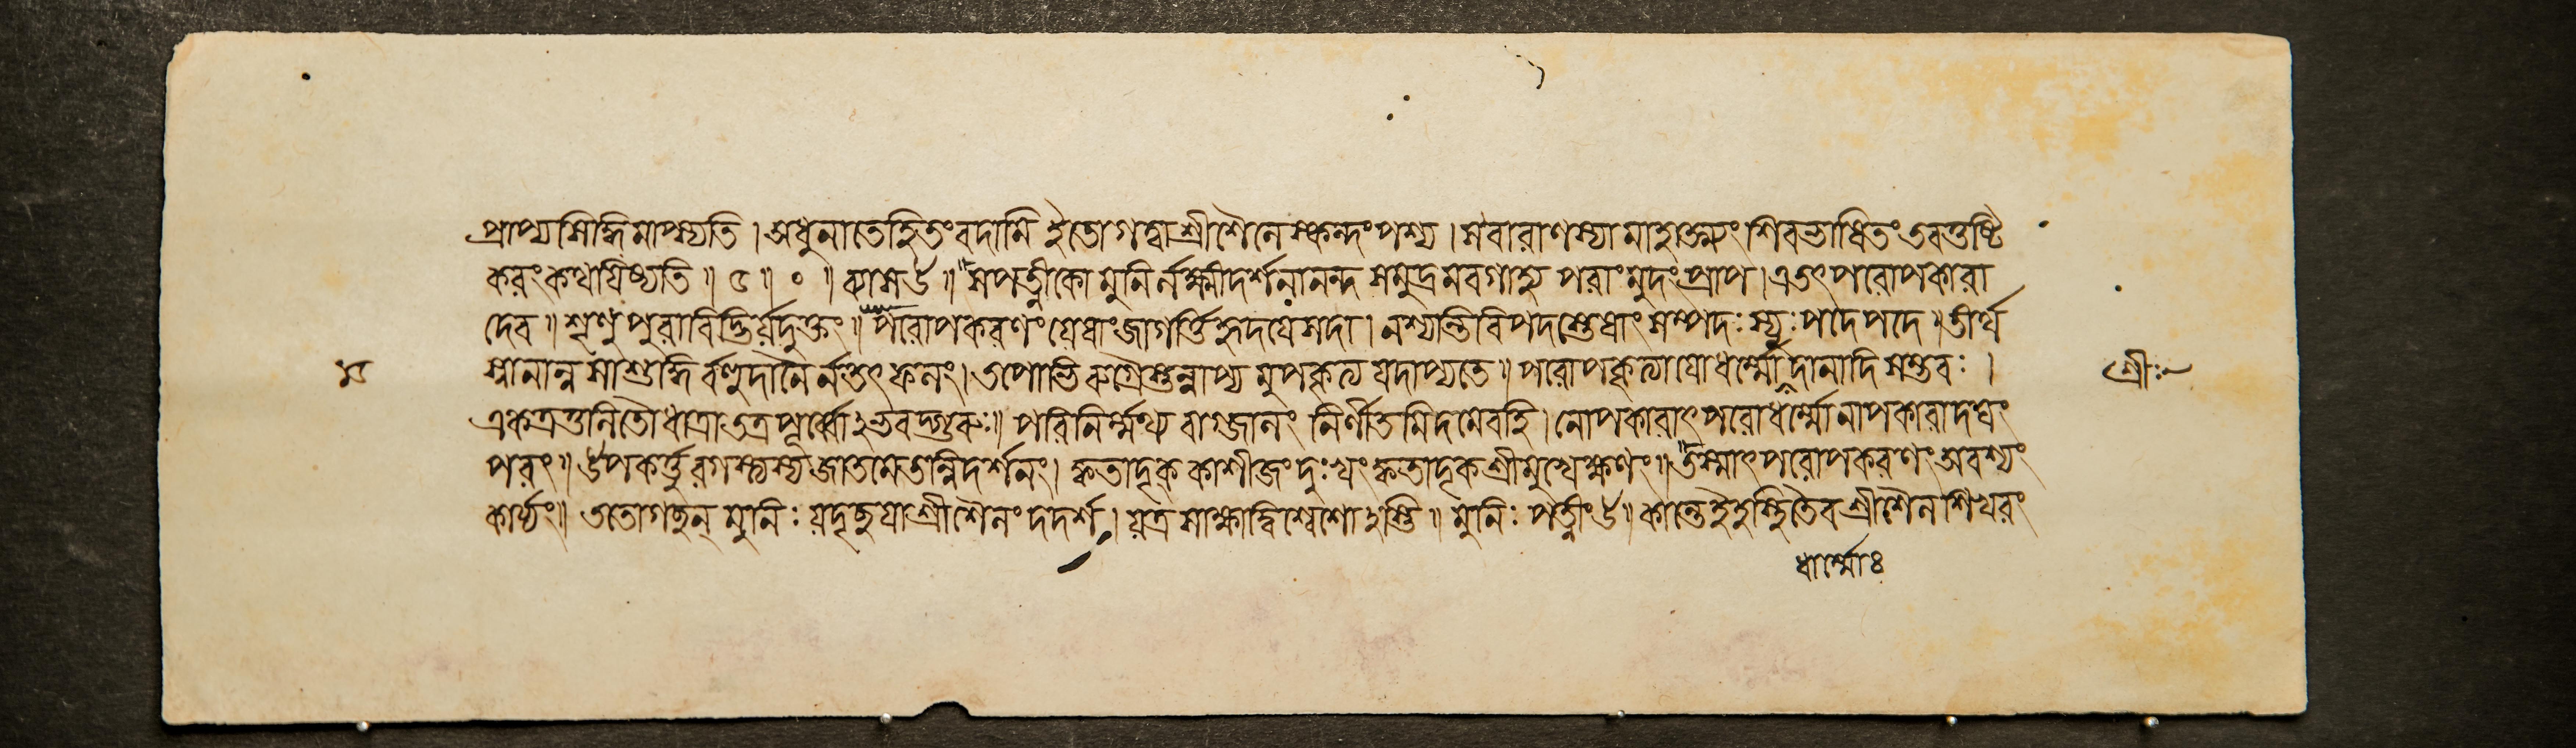 প্রাপ্য সিদ্ধিমাপ্স্যতি । অধুনা তে হিতং বদামি ইতো গত্বা শ্রীশৈলে স্কন্দং পশ্য । স বারাণস্যা মাহাত্ম্যং শিবভাষিতং তব তুষ্টি
করং কথযিষ্যতি ॥ ৫ ॥ ০ ॥ ব্যাস উ ॥ সপত্নীকো মুনি র্লক্ষ্মীদর্শনানন্দ সমুদ্রমবগাহ্য পরাং মুদং প্রাপ । এতৎ পরোপকারা
দেব ॥ শৃণু পুরাবিদ্ভির্য়দুক্তং ॥ পরোপকরণং য়েষাং জাগর্ত্তি হৃদযে সদা । নশ্যন্তি বিপদস্তেষাং সম্পদঃ স্যুঃ পদে পদে ॥ তীর্থ
স্নানান্ন সা শুদ্ধি র্বহুদানৈ র্নতৎ ফলং । তপোভিরুগ্রৈস্তন্নাপ্য মুপকৃত্যা যদাপ্যতে ॥ পরোপকৃত্যা যো ধর্ম্মো দানাদি সম্ভবঃ ।
একত্র তুলিতৌ ধাত্রা তত্র পূর্ব্বোঽভবদ্গুরুঃ ॥ পরিনির্ম্মথ্য বাগ্জালং নির্ণীতমিদমেব হি । নোপকারাৎ পরো ধর্ম্মো নাপকারাদঘং
পরং ॥ উপকর্ত্তুরগস্ত্যস্য জাতমেতন্নিদর্শনং । ক্ব তাদৃক্ কাশীজং দুঃখং ক্ব তাদৃক শ্রীমুখেক্ষণং ॥ তস্মাৎ পরোপকরণং অবশ্যং
কার্য্যং ॥ ততো গচ্ছন্ মুনিঃ য়দৃচ্ছযা শ্রীশৈলং দদর্শ । য়ত্র সাক্ষাদ্বিশ্বেশোঽস্তি ॥ মুনিঃ পত্নীং উ ॥ কান্তে ইহস্থিতৈব শ্রীশৈল শিখরং
শ্রীঃ
ধর্ম্মোঃ